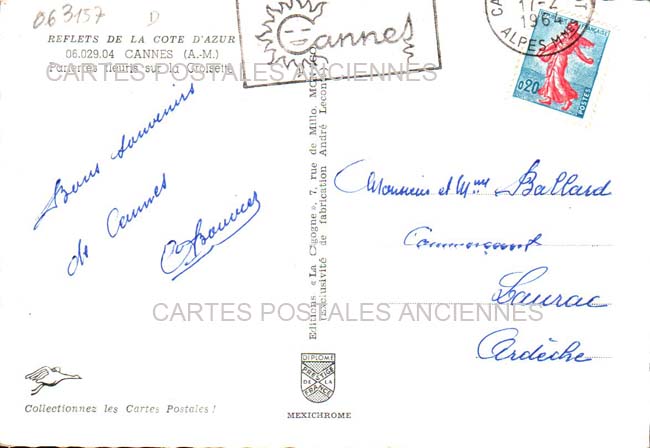 063157 D
REFLETS DE LA COTE D'AZUR
06.029.04 CANNES (A.-M.)
Parterres fleuris sur la Croisette
CARTES POSTALES ANCIENNES
Bons souvenirs
de Cannes
Cannes
17-2
196
ALPES-Mmes
FRANÇAISE
0,20
POSTES
Editions « La Cigogne », 7, rue de Millo,
Exclusivité de fabrication André Lecon
Monsieur et Mme Ballard
Commerçant
Laurac
Ardèche
CARTES POSTALES ANCIENNES
DIPLOME
PRESTIGE
DE LA
FRANCE
MEXICHROME
Collectionnez les Cartes Postales !